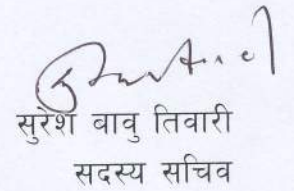 सुरेश बाबु तिवारी
सदस्य सचिव